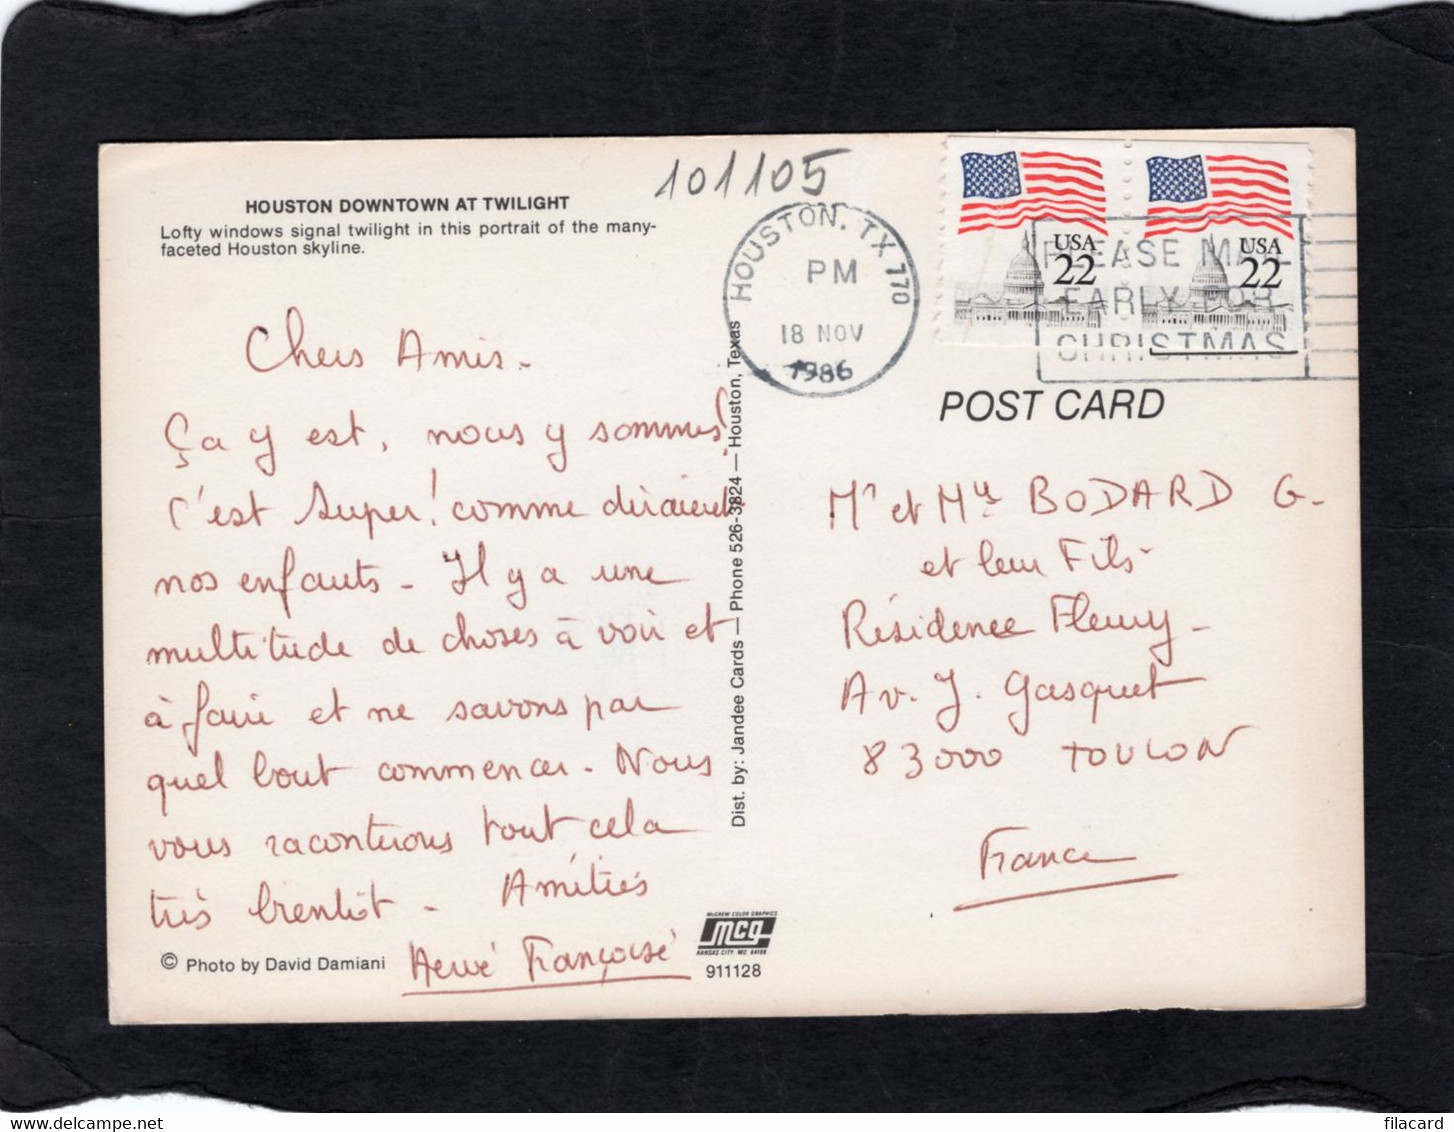 101105
HOUSTON DOWNTOWN AT TWILIGHT
Lofty windows signal twilight in this portrait of the many-
faceted Houston skyline.
HOUSTON, TX 770
PM
18 NOV
1986
USA
22
USA
22
PLEASE MAIL
EARLY FOR
CHRISTMAS
POST CARD
Chers Amis.
Ça y est, nous y sommes!
C'est Super! comme diraient
nos enfants - Il y a une
multitude de choses à voir et
à faire et ne savons par
quel bout commencer. Nous
vous raconterons tout cela
très bientôt - Amitiés
Hervé Françoise
© Photo by David Damiani
Dist. by: Jandee Cards — Phone 526-3824 — Houston, Texas
McGREW COLOR GRAPHICS
mcg
KANSAS CITY, MO. 64108
911128
Mr et Mme BODARD G.
et leur Fils
Résidence Fleury -
Av. J. Gasquet
83000 TOULON
France
delcampe.net
filacard